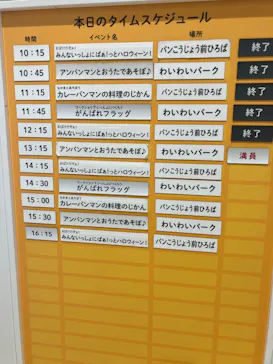 本日のタイムスケジュール
時間 イベント名 場所
10:15 みんないっしょにばぁ!っとハロウィーン! パンこうじょう前ひろば 終了
10:45 アンパンマンとおうたであそぼ♪ わいわいパーク 終了
11:15 カレーパンマンの料理のじかん パンこうじょう前ひろば 終了
11:45 がんばれフラッグ わいわいパーク 終了
12:15 みんないっしょにばぁ!っとハロウィーン! パンこうじょう前ひろば 終了
13:15 アンパンマンとおうたであそぼ♪ わいわいパーク 満員
14:15 みんないっしょにばぁ!っとハロウィーン! パンこうじょう前ひろば
14:30 がんばれフラッグ わいわいパーク
15:00 カレーパンマンの料理のじかん パンこうじょう前ひろば
15:30 アンパンマンとおうたであそぼ♪ わいわいパーク
16:15 みんないっしょにばぁ!っとハロウィーン! パンこうじょう前ひろば